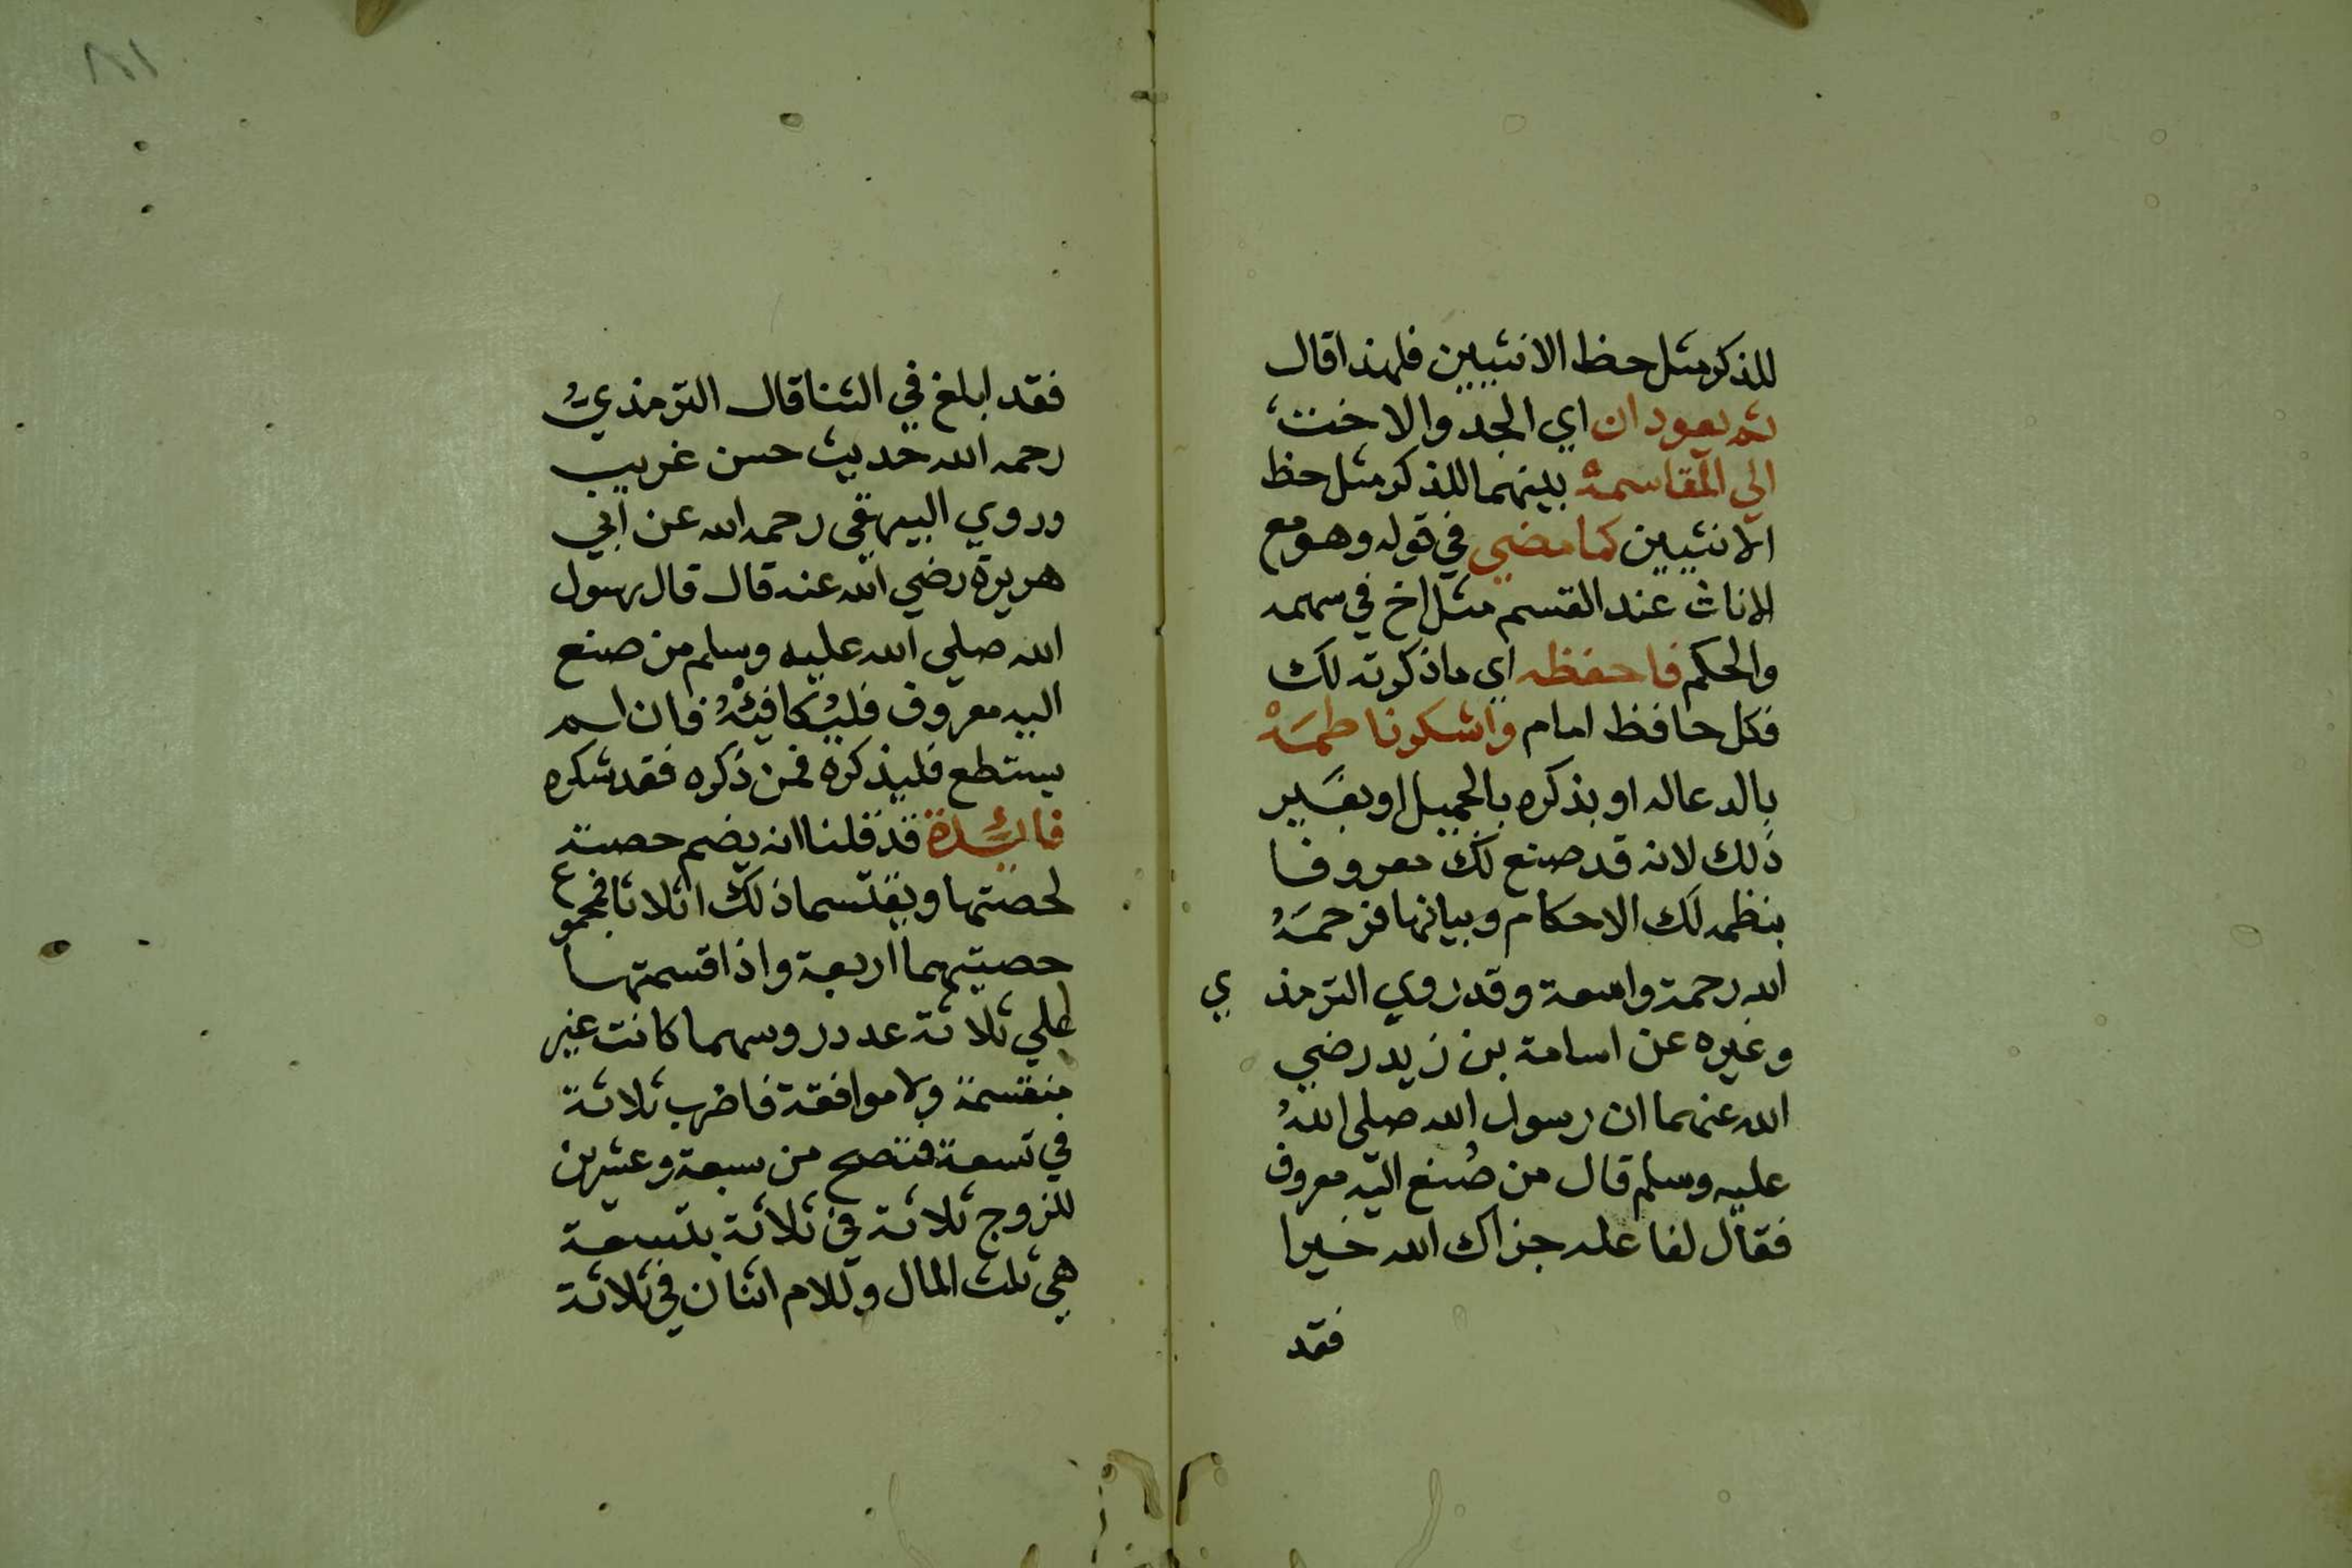 للذكر مثل حظ الانثيين فلهذا قال
ثم يعودان اي الجد والاخت
الي المقاسمة بينهما للذكر مثل حظ
الانثيين كما مضي في قوله وهو مع
الاناث عند القسم مثل اخ في سهمه
والحكم فاحفظه اي ما ذكرته لك
فكل حافظ امام واشكر ناظمَهْ
بالدعا له او بذكره بالجميل او بغير
ذلك لانه قد صنع لك معروفا
بنظمه لك الاحكام وبيانها فرحمَهُ
الله رحمة واسعة وقد روي الترمذي
وغيره عن اسامة بن زيد رضي
الله عنهما ان رسول الله صلي اللهُ
عليه وسلم قال من صُنع اليه معروف
فقال لفاعله جزاك الله خيرا
فقد
٨١
فقد ابلغ في الثنا قال الترمذيُ
رحمه الله حديث حسن غريب
وروي البيهقي رحمه الله عن ابي
هريرة رضي الله عنه قال قال رسول
الله صلي الله عليه وسلم من صنع
اليه معروف فليُكافِئْهُ فان لم
يستطع فليذكره فمن ذكره فقد شكره
فائدة قد قلنا انه يضم حصته
لحصتها ويقتسما ذلك اثلاثا فمجموع
حصتيهما اربعة واذا قسمتها
علي ثلاثة عدد روسهما كانت غير
منقسمة ولا موافقة فاضرب ثلاثة
في تسعة فتصح من سبعة وعشرين
للزوج ثلاثة في ثلاثة بتسعة
هي ثلث المال وللام اثنان في ثلاثة